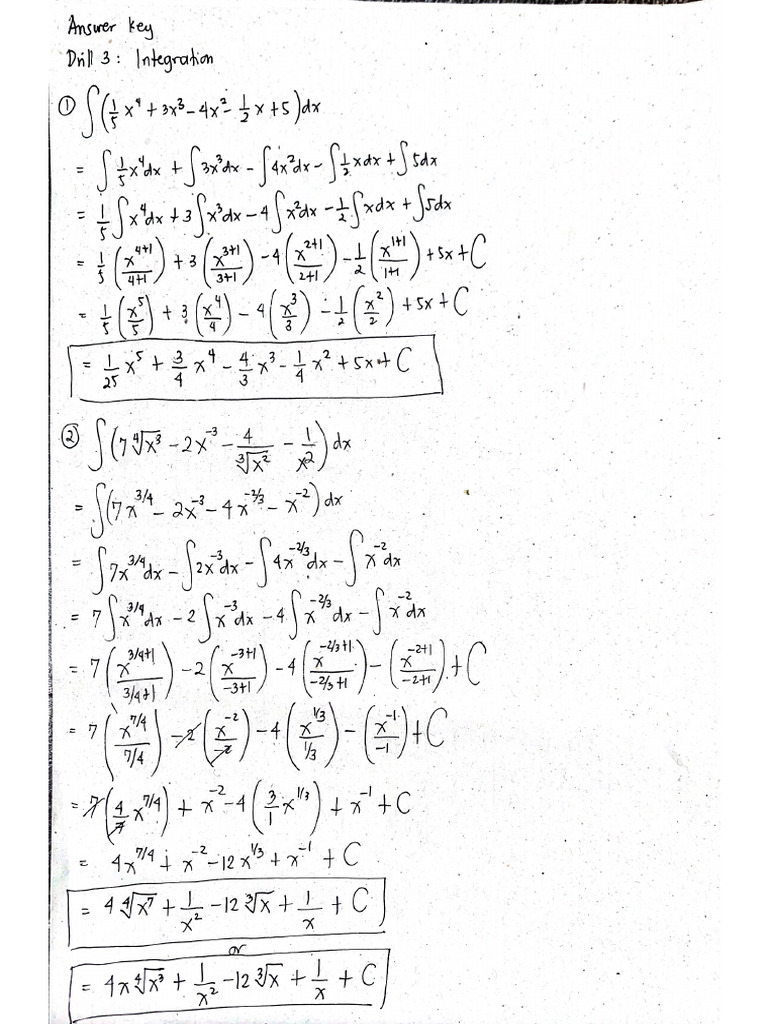 Answer key
Drill 3: Integration
① ∫(1/5 x⁴ + 3x³ - 4x² - 1/2 x + 5)dx
= ∫1/5 x⁴dx + ∫3x³dx - ∫4x²dx - ∫1/2 xdx + ∫5dx
= 1/5 ∫x⁴dx + 3∫x³dx - 4∫x²dx - 1/2 ∫xdx + ∫5dx
= 1/5 (x^(4+1)/(4+1)) + 3 (x^(3+1)/(3+1)) - 4 (x^(2+1)/(2+1)) - 1/2 (x^(1+1)/(1+1)) + 5x + C
= 1/5 (x⁵/5) + 3 (x⁴/4) - 4 (x³/3) - 1/2 (x²/2) + 5x + C
= 1/25 x⁵ + 3/4 x⁴ - 4/3 x³ - 1/4 x² + 5x + C
② ∫(7 ∜x³ - 2x⁻³ - 4/∛x² - 1/x²) dx
= ∫(7x^(3/4) - 2x⁻³ - 4x^(-2/3) - x⁻²) dx
= ∫7x^(3/4)dx - ∫2x⁻³dx - ∫4x^(-2/3)dx - ∫x⁻²dx
= 7∫x^(3/4)dx - 2∫x⁻³dx - 4∫x^(-2/3)dx - ∫x⁻²dx
= 7 (x^(3/4+1)/(3/4+1)) - 2 (x^(-3+1)/(-3+1)) - 4 (x^(-2/3+1)/(-2/3+1)) - (x^(-2+1)/(-2+1)) + C
= 7 (x^(7/4)/(7/4)) - 2 (x⁻²/-2) - 4 (x^(1/3)/(1/3)) - (x⁻¹/-1) + C
= 7 (4/7 x^(7/4)) + x⁻² - 4 (3/1 x^(1/3)) + x⁻¹ + C
= 4x^(7/4) + x⁻² - 12x^(1/3) + x⁻¹ + C
= 4 ∜x⁷ + 1/x² - 12 ∛x + 1/x + C
or
= 4x ∜x³ + 1/x² - 12 ∛x + 1/x + C